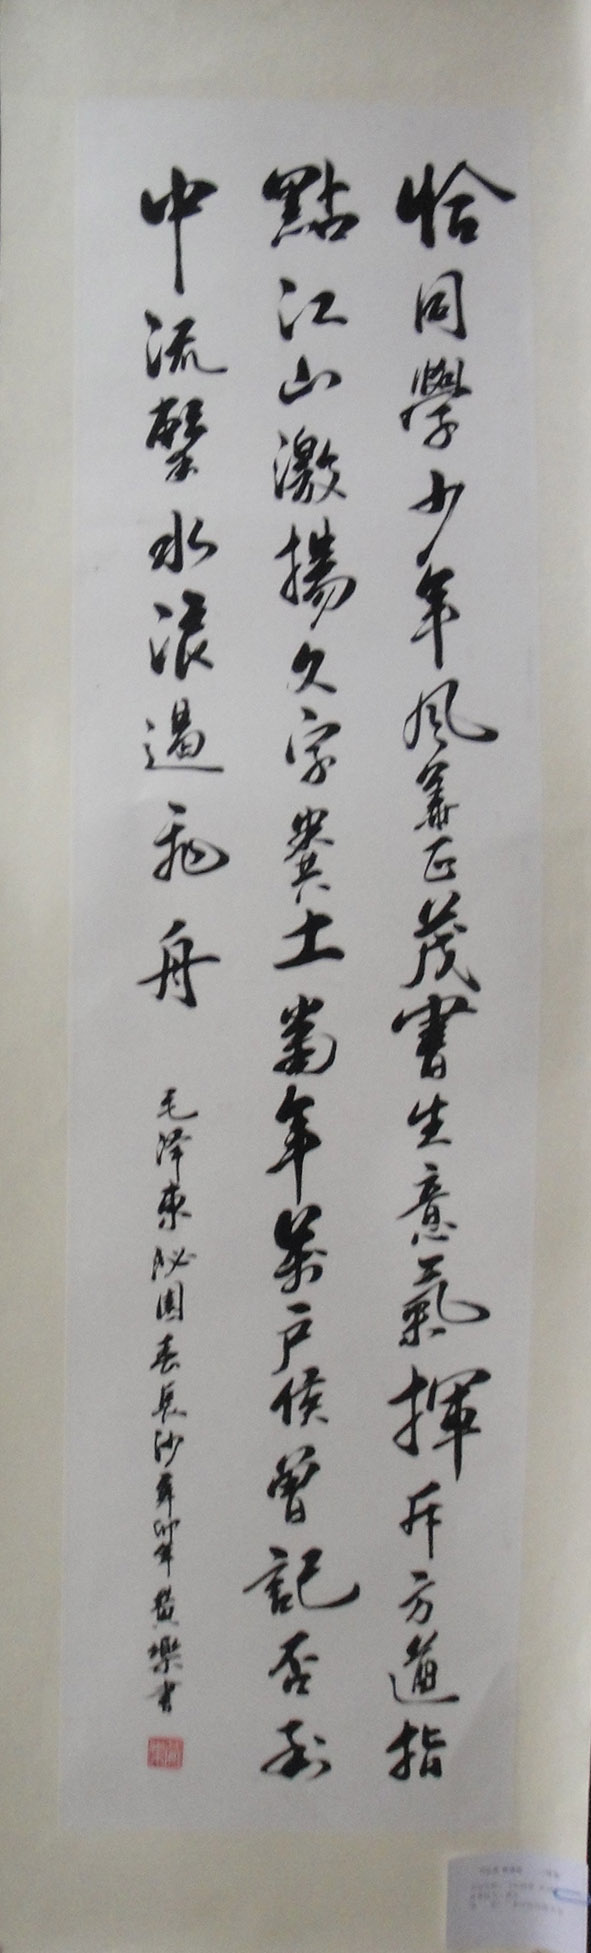 恰同學少年風華正茂書生意氣揮斥方遒指
點江山激揚文字糞土當年萬户侯曾記否到
中流擊水浪遏飛舟
毛泽東沁園春長沙辛卯年黄樂書